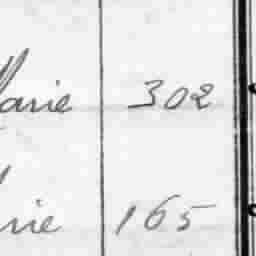 Marie 302
rie 165